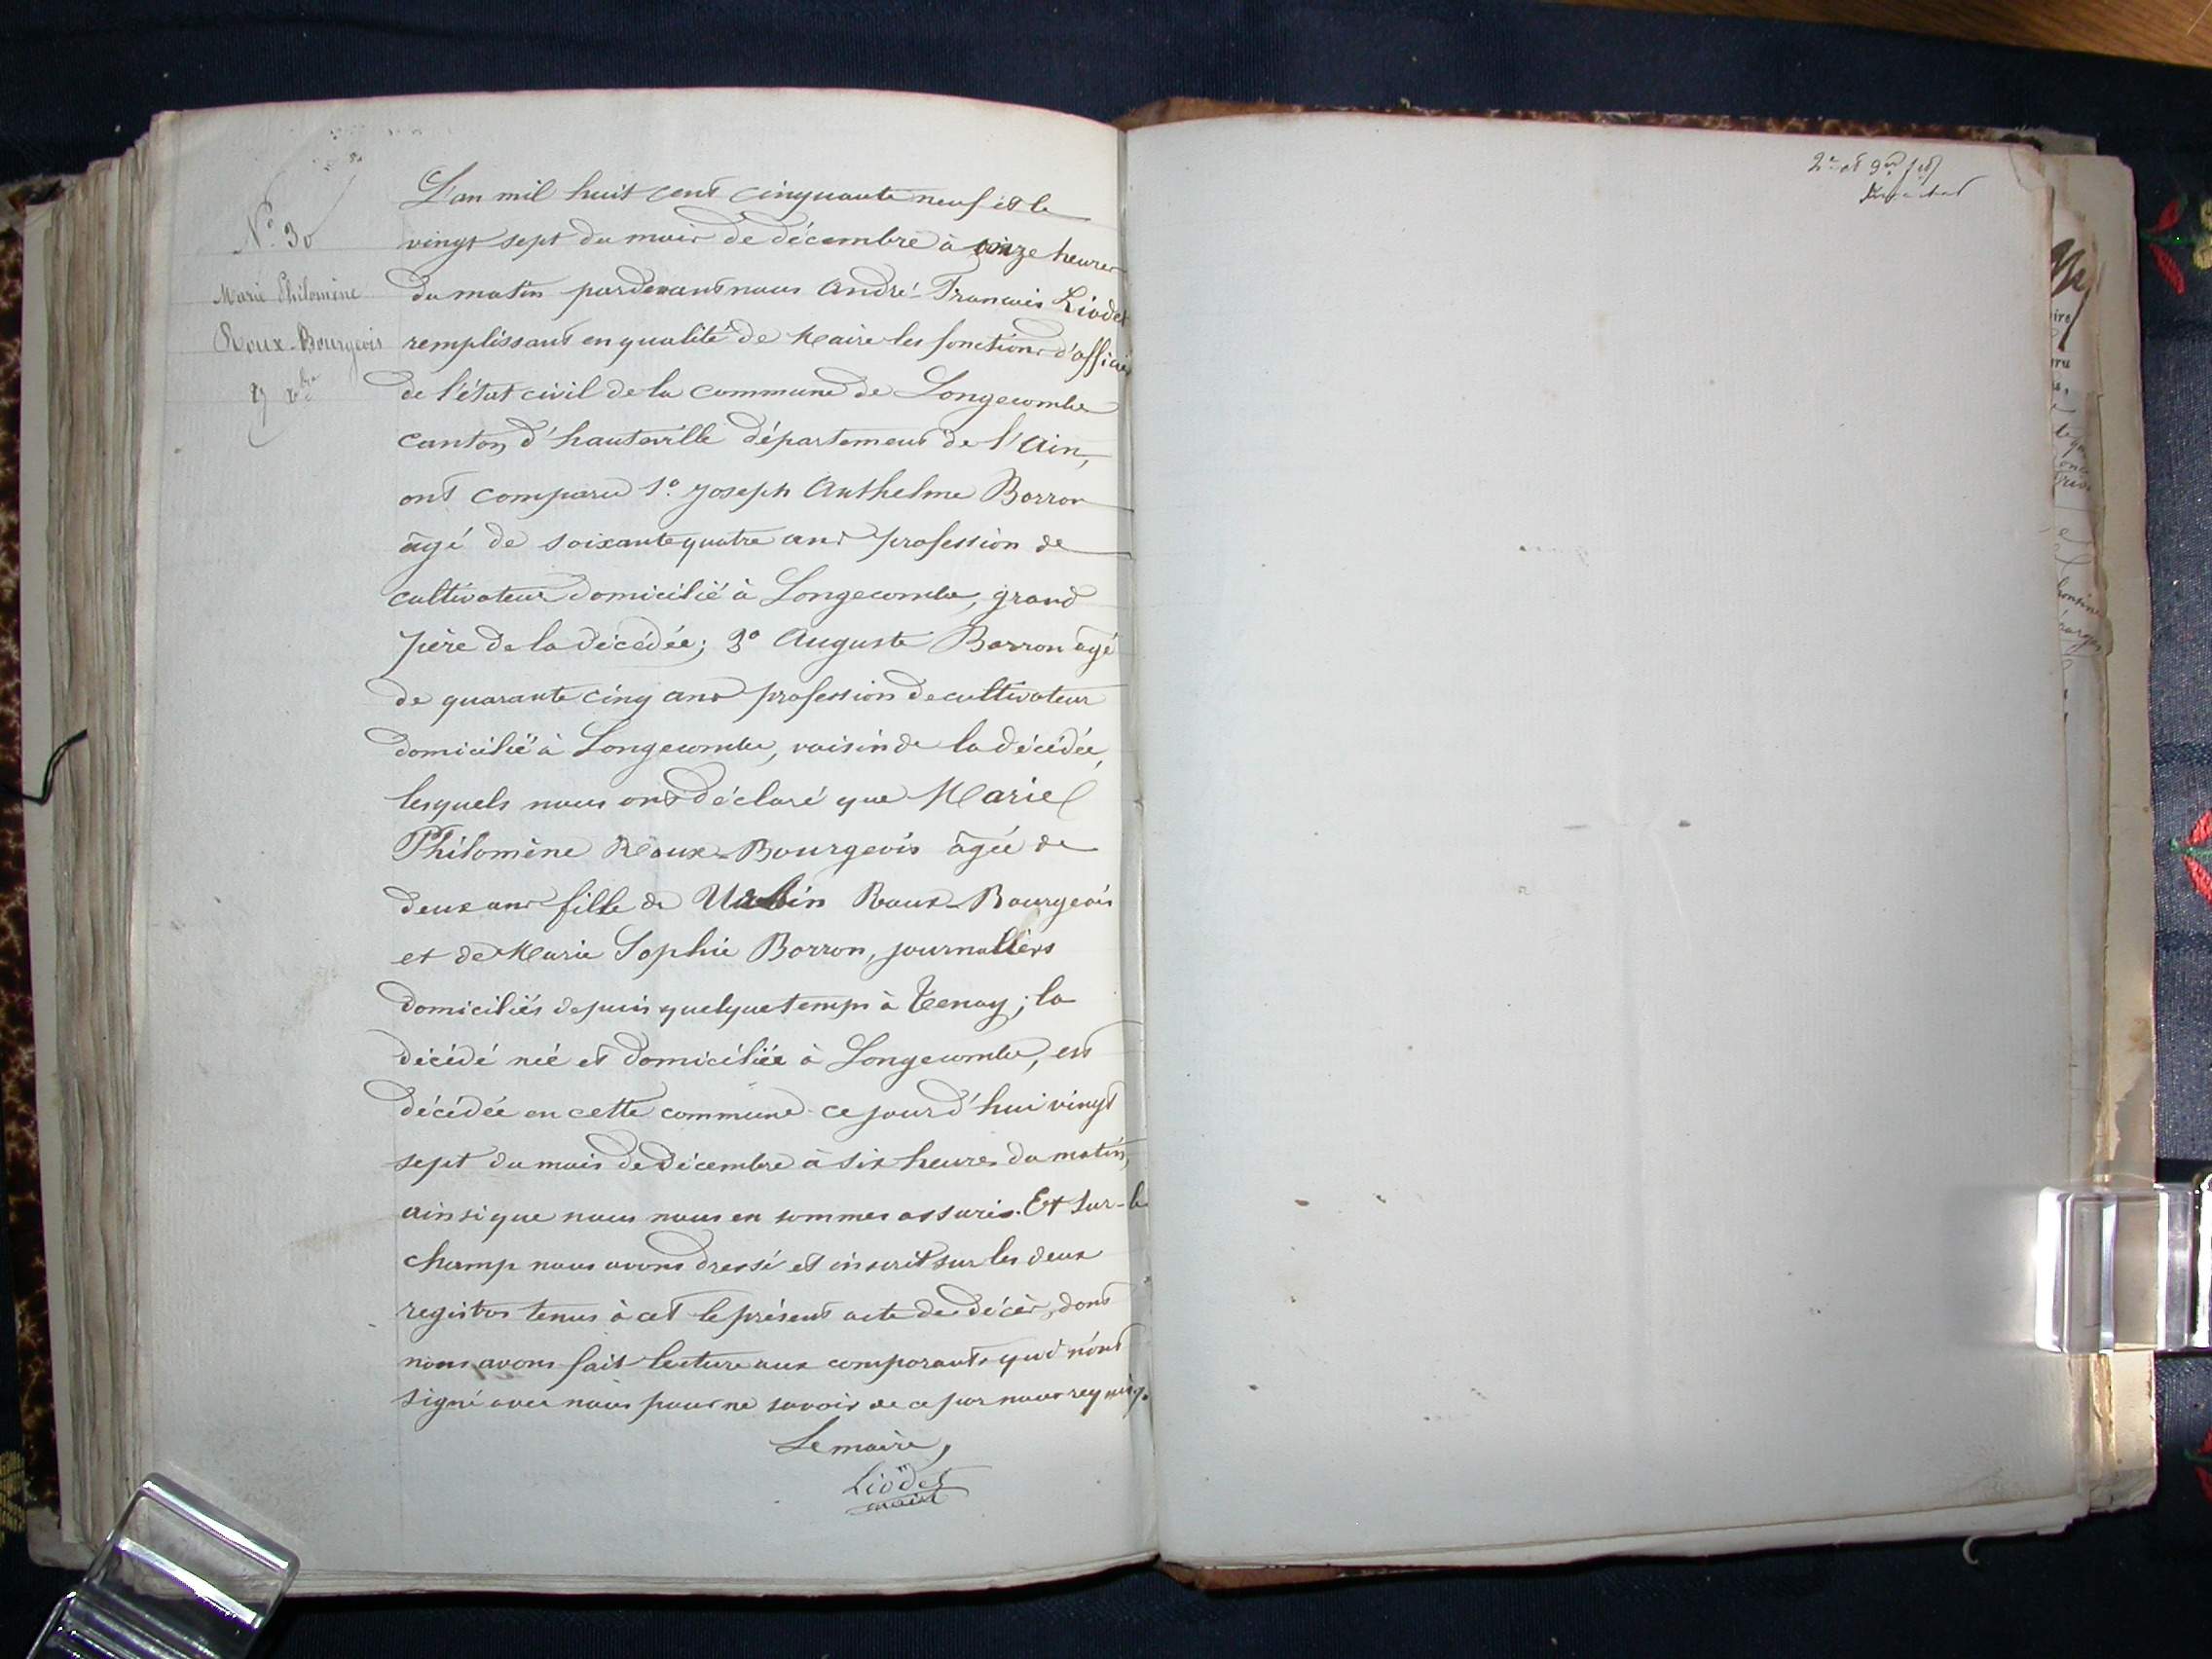 N.° 30
Marie Philomène
Roux-Bourgeois
L'an mil huit cent cinquante neuf et le
vingt sept du mois de décembre à onze heures
du matin pardevant nous André-François Liodet
remplissant en qualité de Maire les fonctions d'officier
de l'état civil de la commune de Longecombe
canton d'hauteville département de l'Ain,
ont comparu 1.° Joseph Anthelme Borron
âgé de soixante quatre ans profession de
cultivateur domicilié à Longecombe, grand
père de la décédée; 2° Auguste Borron âgé
de quarante cinq ans profession de cultivateur
domicilié à Longecombe, voisin de la décédée,
lesquels nous ont déclaré que Marie
Philomène Roux-Bourgeois âgée de
deux ans fille de Urbin Roux-Bourgeois
et de Marie Sophie Borron, journaliers
domiciliés depuis quelque temps à Tenay; la
décédé née et domiciliée à Longecombe, est
décédée en cette commune ce jourd'hui vingt
sept du mois de Décembre à six heures du matin,
ainsi que nous nous en sommes assurés. Et sur-le
champ nous avons dressé et inscrit sur les deux
registres tenus à cet le présent acte de décès, dont
nous avons fait lecture aux comparants qui n'ont
signé avec nous pour ne savoir de ce par nous
Le maire,
Liodet
2e et